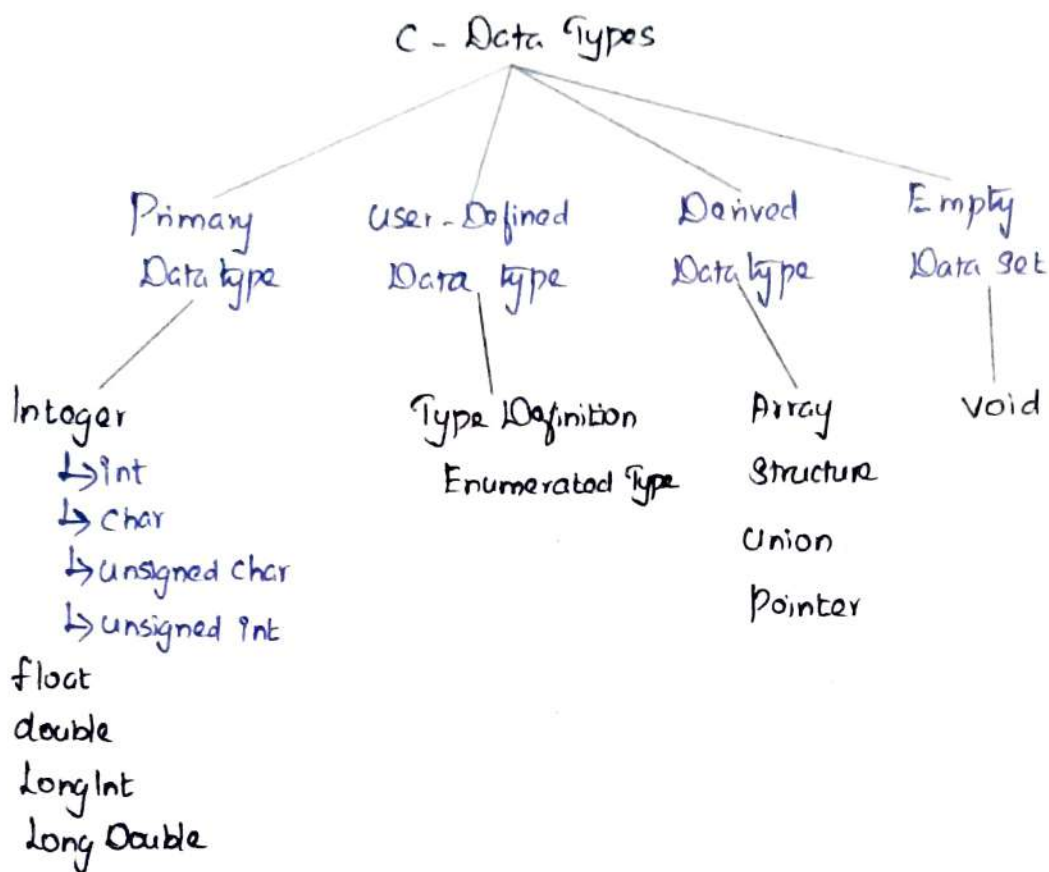 C - Data Types
Primary
Data type
User-Defined
Data type
Derived
Data type
Empty
Data set
Integer
↳ int
↳ char
↳ unsigned char
↳ unsigned int
float
double
Long Int
Long Double
Type Definition
Enumerated Type
Array
Structure
Union
Pointer
Void